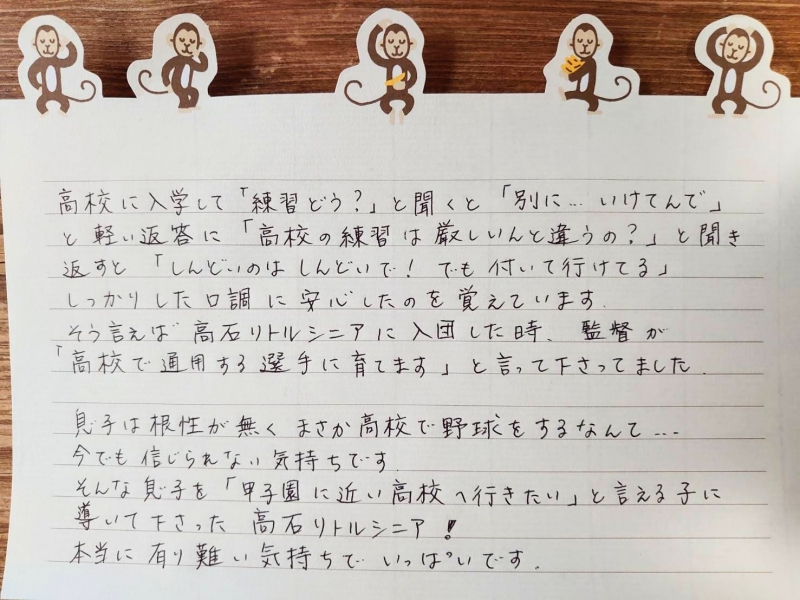 高校に入学して「練習どう？」と聞くと「別に… いけてんで」
と軽い返答に「高校の練習は厳しいんと違うの？」と聞き
返すと「しんどいのは しんどいで！ でも 付いて行けてる」
しっかりした口調に安心したのを覚えています.
そう言えば 高石リトルシニアに入団した時、監督が
「高校で通用する選手に育てます」と言って下さってました.
息子は根性が無く まさか高校で野球をするなんて…
今でも信じられない気持ちです.
そんな息子を「甲子園に近い高校へ行きたい」と言える子に
導いて下さった 高石リトルシニア！
本当に有り難い気持ちで いっぱいです.